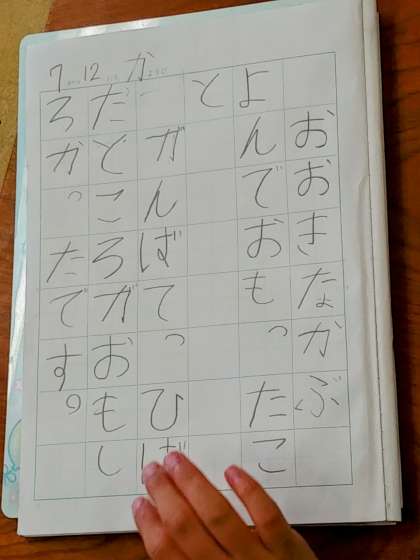 7 12 か
おおきなかぶ
よんでおもったこ
と
がんばてっひ
だところがおもし
ろかったです。